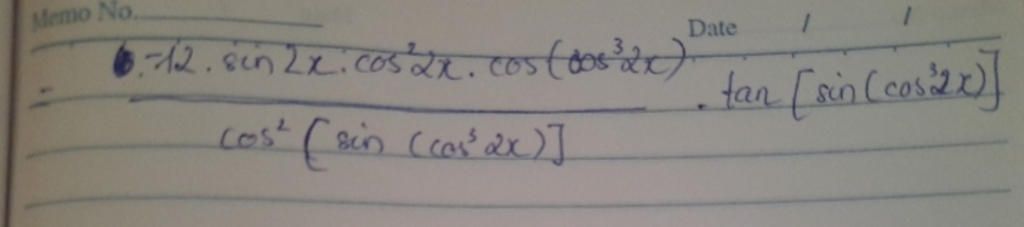 Memo No.
Date / /
= -12 . sin 2x . cos²2x . cos(cos³2x) / cos² [ sin (cos³ 2x) ] . tan [ sin (cos³2x) ]